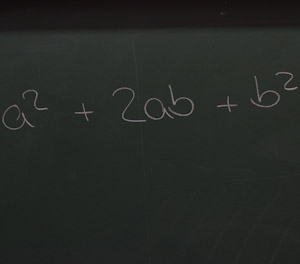 a² + 2ab + b²